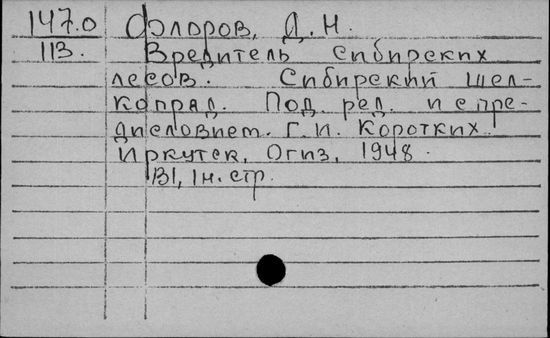 147.0 Фэлоров, Д. Н.
113. Вредитель сибирских
лесов. Сибирский шел-
копряд. Под. ред. и с пре-
дисловием. Г. И. Коротких.
Иркутск, Огиз, 1948.
131, 1 н. стр.